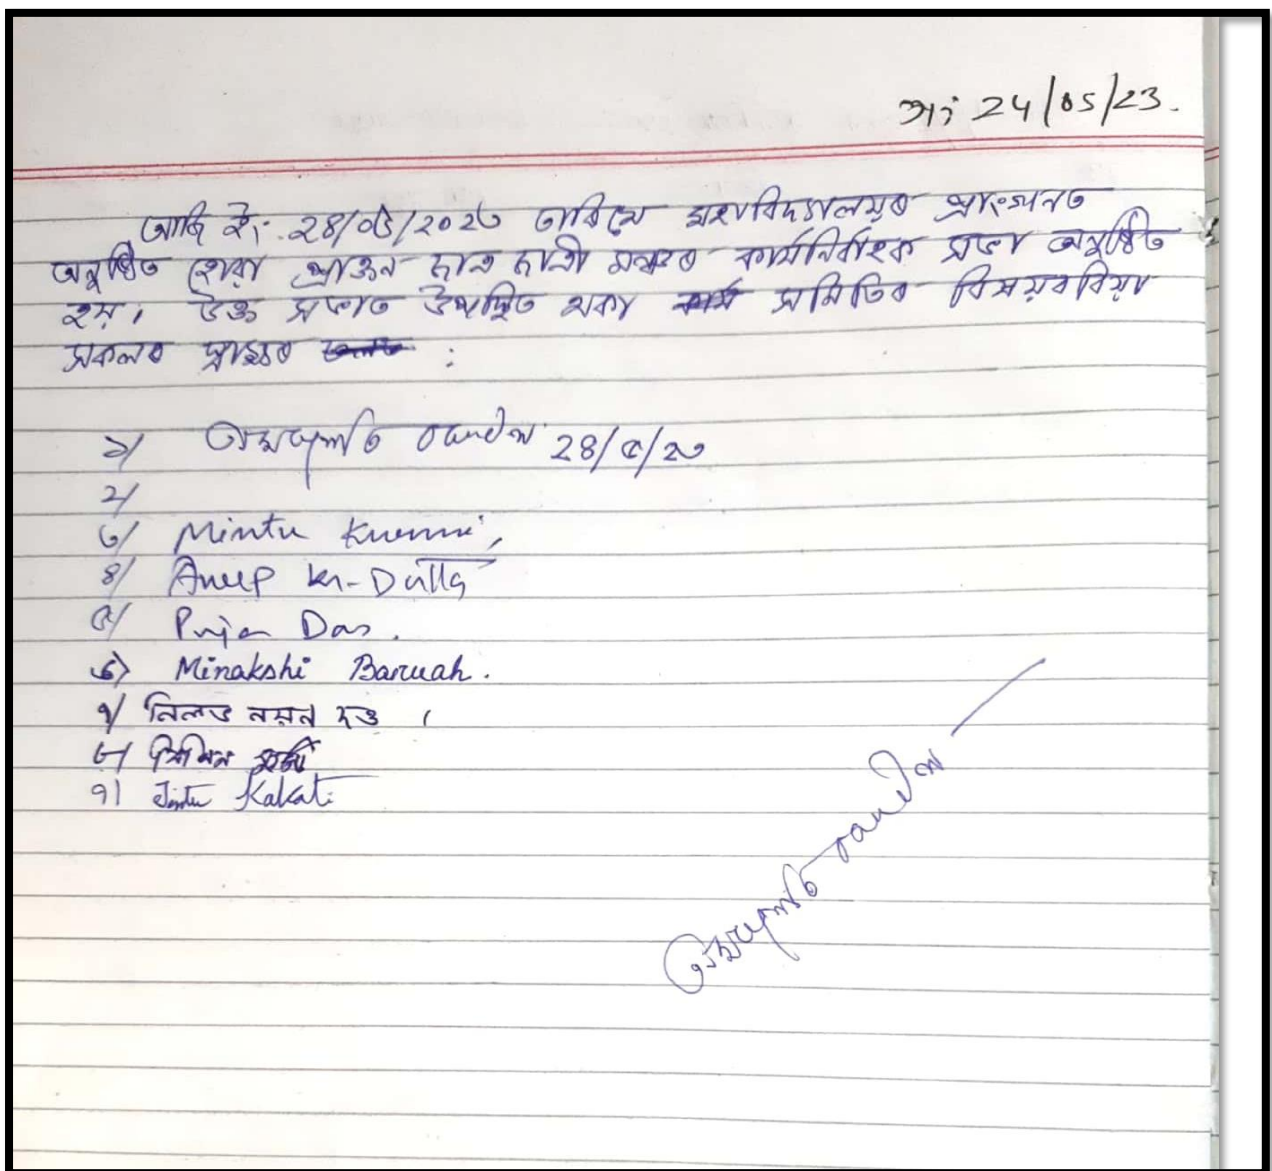 তাং 24/05/23.
আজি ইং 28/05/2023 তাৰিখে মহাবিদ্যালয়ৰ প্ৰাংগনত
অনুষ্ঠিত হোৱা প্ৰাক্তন ছাত্ৰ ছাত্ৰী মঞ্চৰ কাৰ্যনিৰ্বাহক সভা অনুষ্ঠিত
হয়। উক্ত সভাত উপস্থিত থকা সমিতিৰ বিষয়ববিয়া
সকলৰ স্বাক্ষৰ :
১/ ২৪/৫/২৩
২/
৩/ Mintu Kurmi,
৪/ Anup Kr. Dutta
৫/ Puja Das.
৬) Minakshi Baruah.
৭/ নিলভ নয়ন দত্ত ।
৮/
৯। Jintu Kakati